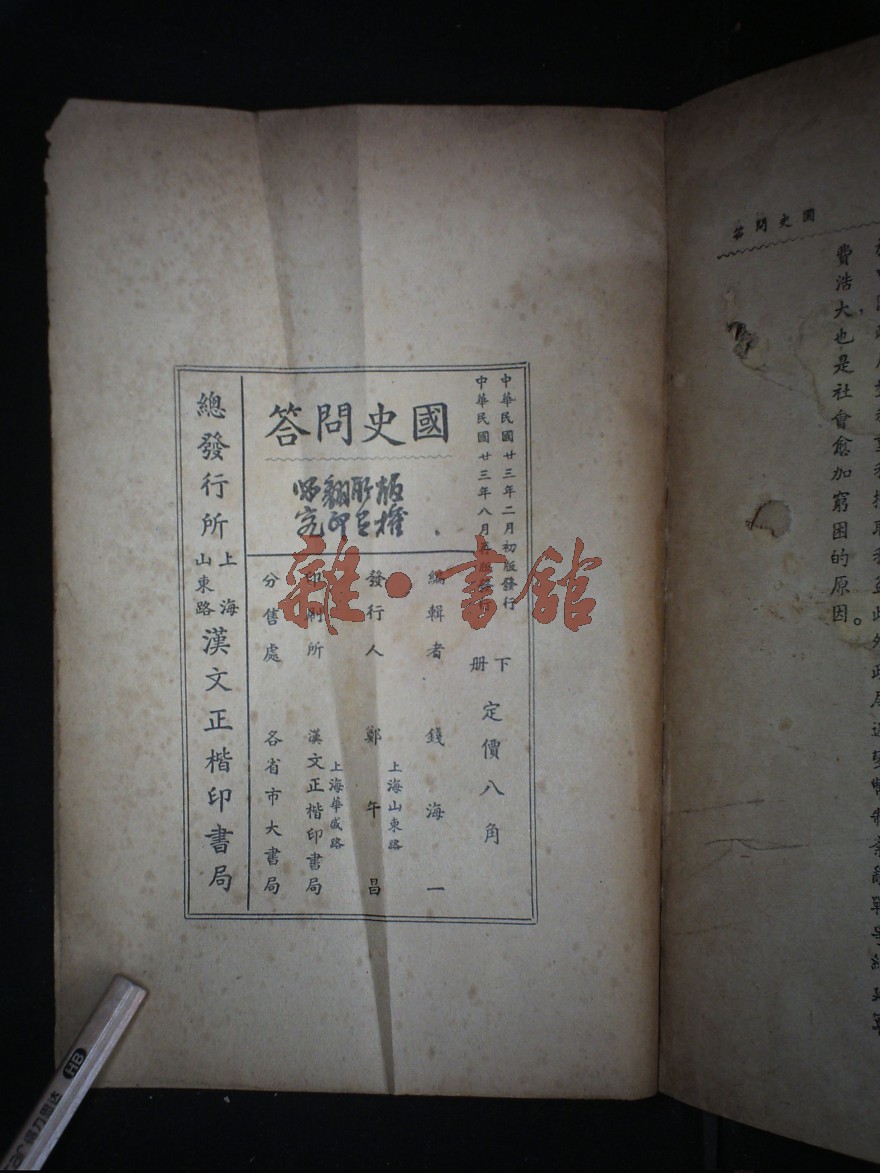 國史問答
費浩大也是社會愈加窮困的原因。
中華民國廿三年二月初版發行
中華民國廿三年八月再版發行
下册
定價八角
國史問答
版權所有
翻印必究
編輯者 錢海一
發行人 鄭午昌
上海山東路
印刷所 漢文正楷印書局
上海華成路
分售處 各省市大書局
總發行所 上海山東路 漢文正楷印書局
雜·書館
HB